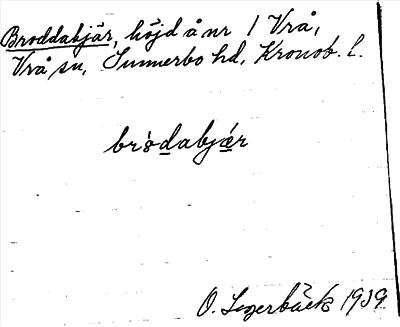 Broddabjär, höjd å nr 1 Vrå,
Vrå sn, Sunnerbo hd, Kronob. l.
bròdabjǽr
O. Legerbäck 1939.